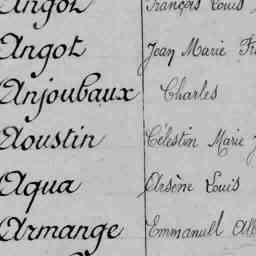 Angot François Louis
Angot Jean Marie
Anjoubaux Charles
Aoustin Célestin Marie
Aqua Arsène Louis
Armange Emmanuel